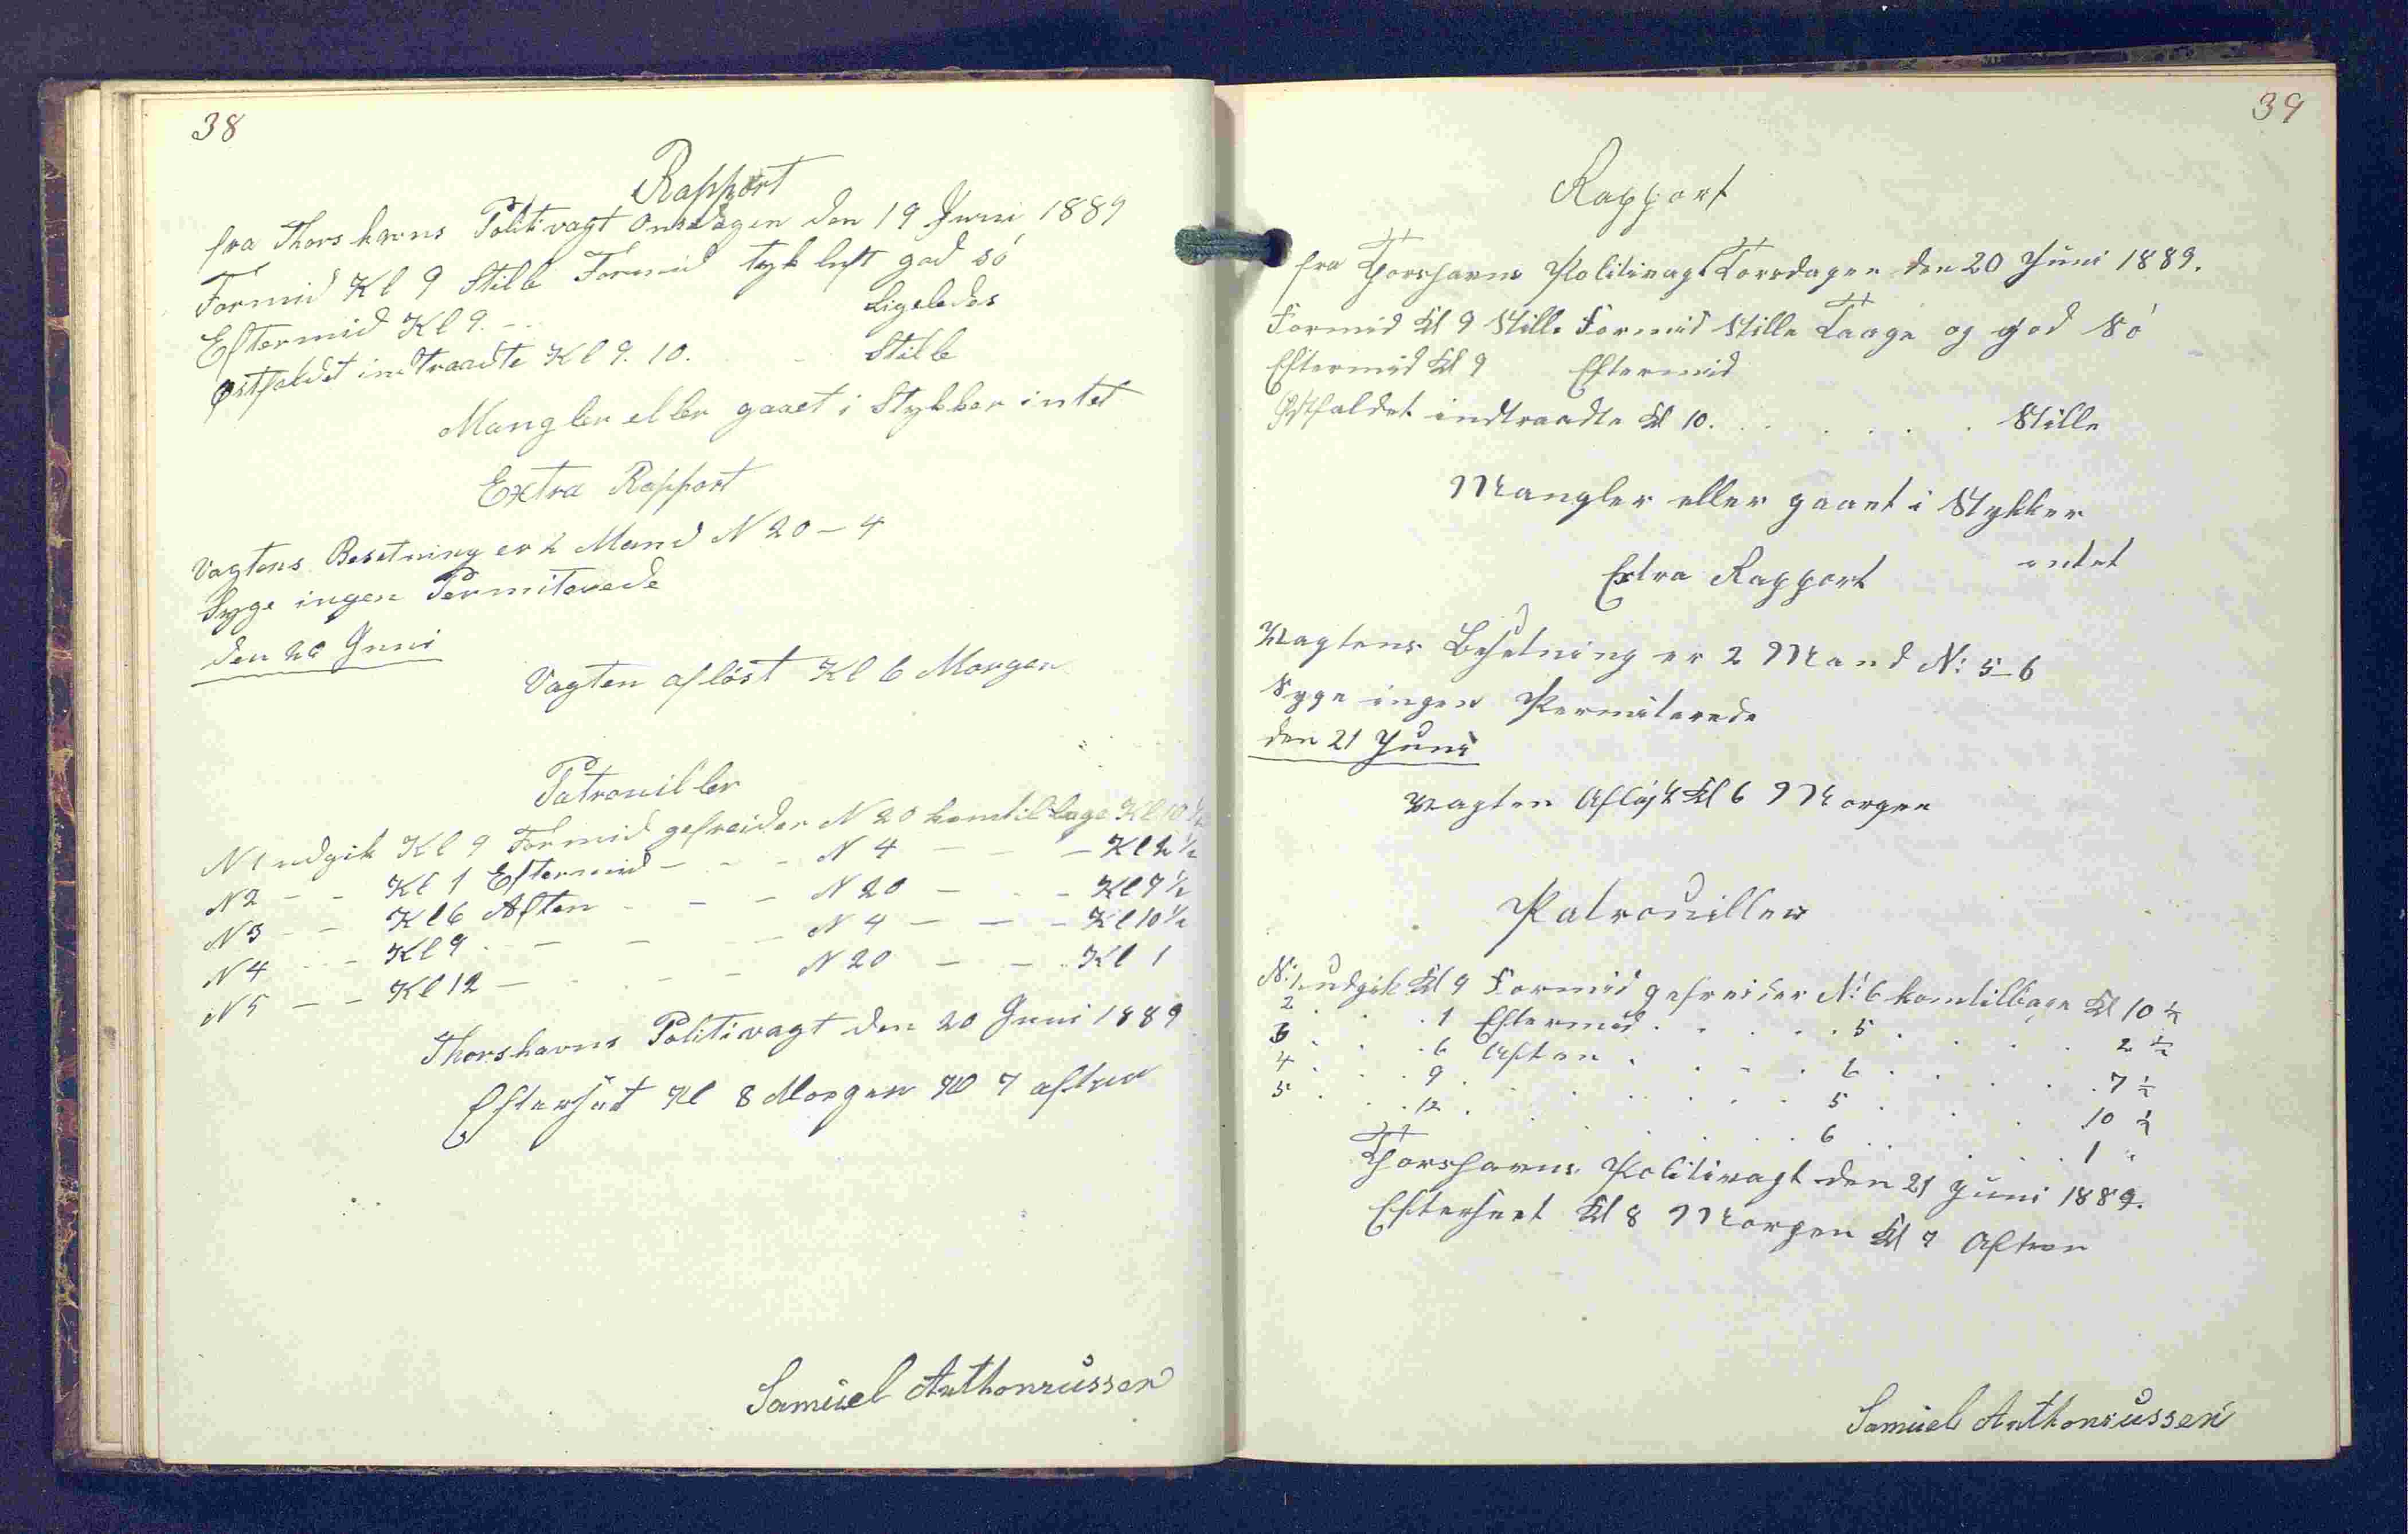 38
Rapport
fra Thorshavns Politivagt Onsdagen den 19 Juni 1889
Formid Kl 9 Stille Formid tyk luft god só
Eftermid Kl 9. - - Ligeledes
Østfaldet intraadte Kl 9. 10. - Stille
Mangler eller gaaet i Stykker intet
Extra Rapport
Vagtens Besetning er 2 Mand N 20 - 4
Syge ingen Permiterede
den 20 Juni
Vagten aflöst Kl 6 Morgen
Patrouiller
N 1 udgik Kl 9 Formid gefreider N 20 kom tilbage Kl 10 ½
N 2 - - Kl 1 Eftermid - - - N 4 - - - Kl 2 ½
N 3 - - Kl 6 Aften - - - N 20 - - - Kl 7 ½
N 4 - - Kl 9 - - - - N 4 - - - Kl 10 ½
N 5 - - Kl 12 - - - - N 20 - - - Kl 1
Thorshavns Politivagt den 20 Juni 1889
Efterset Kl 8 Morgen Kl 7 aften
Samuel Anthoniussen
39
Rapport
fra Thorshavns Politivagt Torsdagen den 20 Juni 1889.
Formid Kl 9 Stille Formid Stille Taage og god Só
Eftermid Kl 9 Eftermid
Østfaldet indtraadte Kl 10. . . . . . . Stille
Mangler eller gaaet i Stykker
intet
Extra Rapport
Vagtens Besetning er 2 Mand N: 5-6
Syge ingen Permiterede
den 21 Juni
Vagten Afløst Kl 6 Morgen
Patrouiller
N: 1 udgik Kl 9 Formid gefreider N: 6 kom tilbage Kl 10 ½
2 . . . 1 Eftermid . . . . . 5 . . . . . 2 ½
3 . . . 6 Aften . . . . . 6 . . . . . 7 ½
4 . . . 9 . . . . . . . 5 . . . . 10 ½
5 . . . 12 . . . . . . 6 . . . . . 1 "
Thorshavns Politivagt den 21 Juni 1889.
Efterseet Kl 8 Morgen Kl 7 Aften
Samuel Anthoniussen